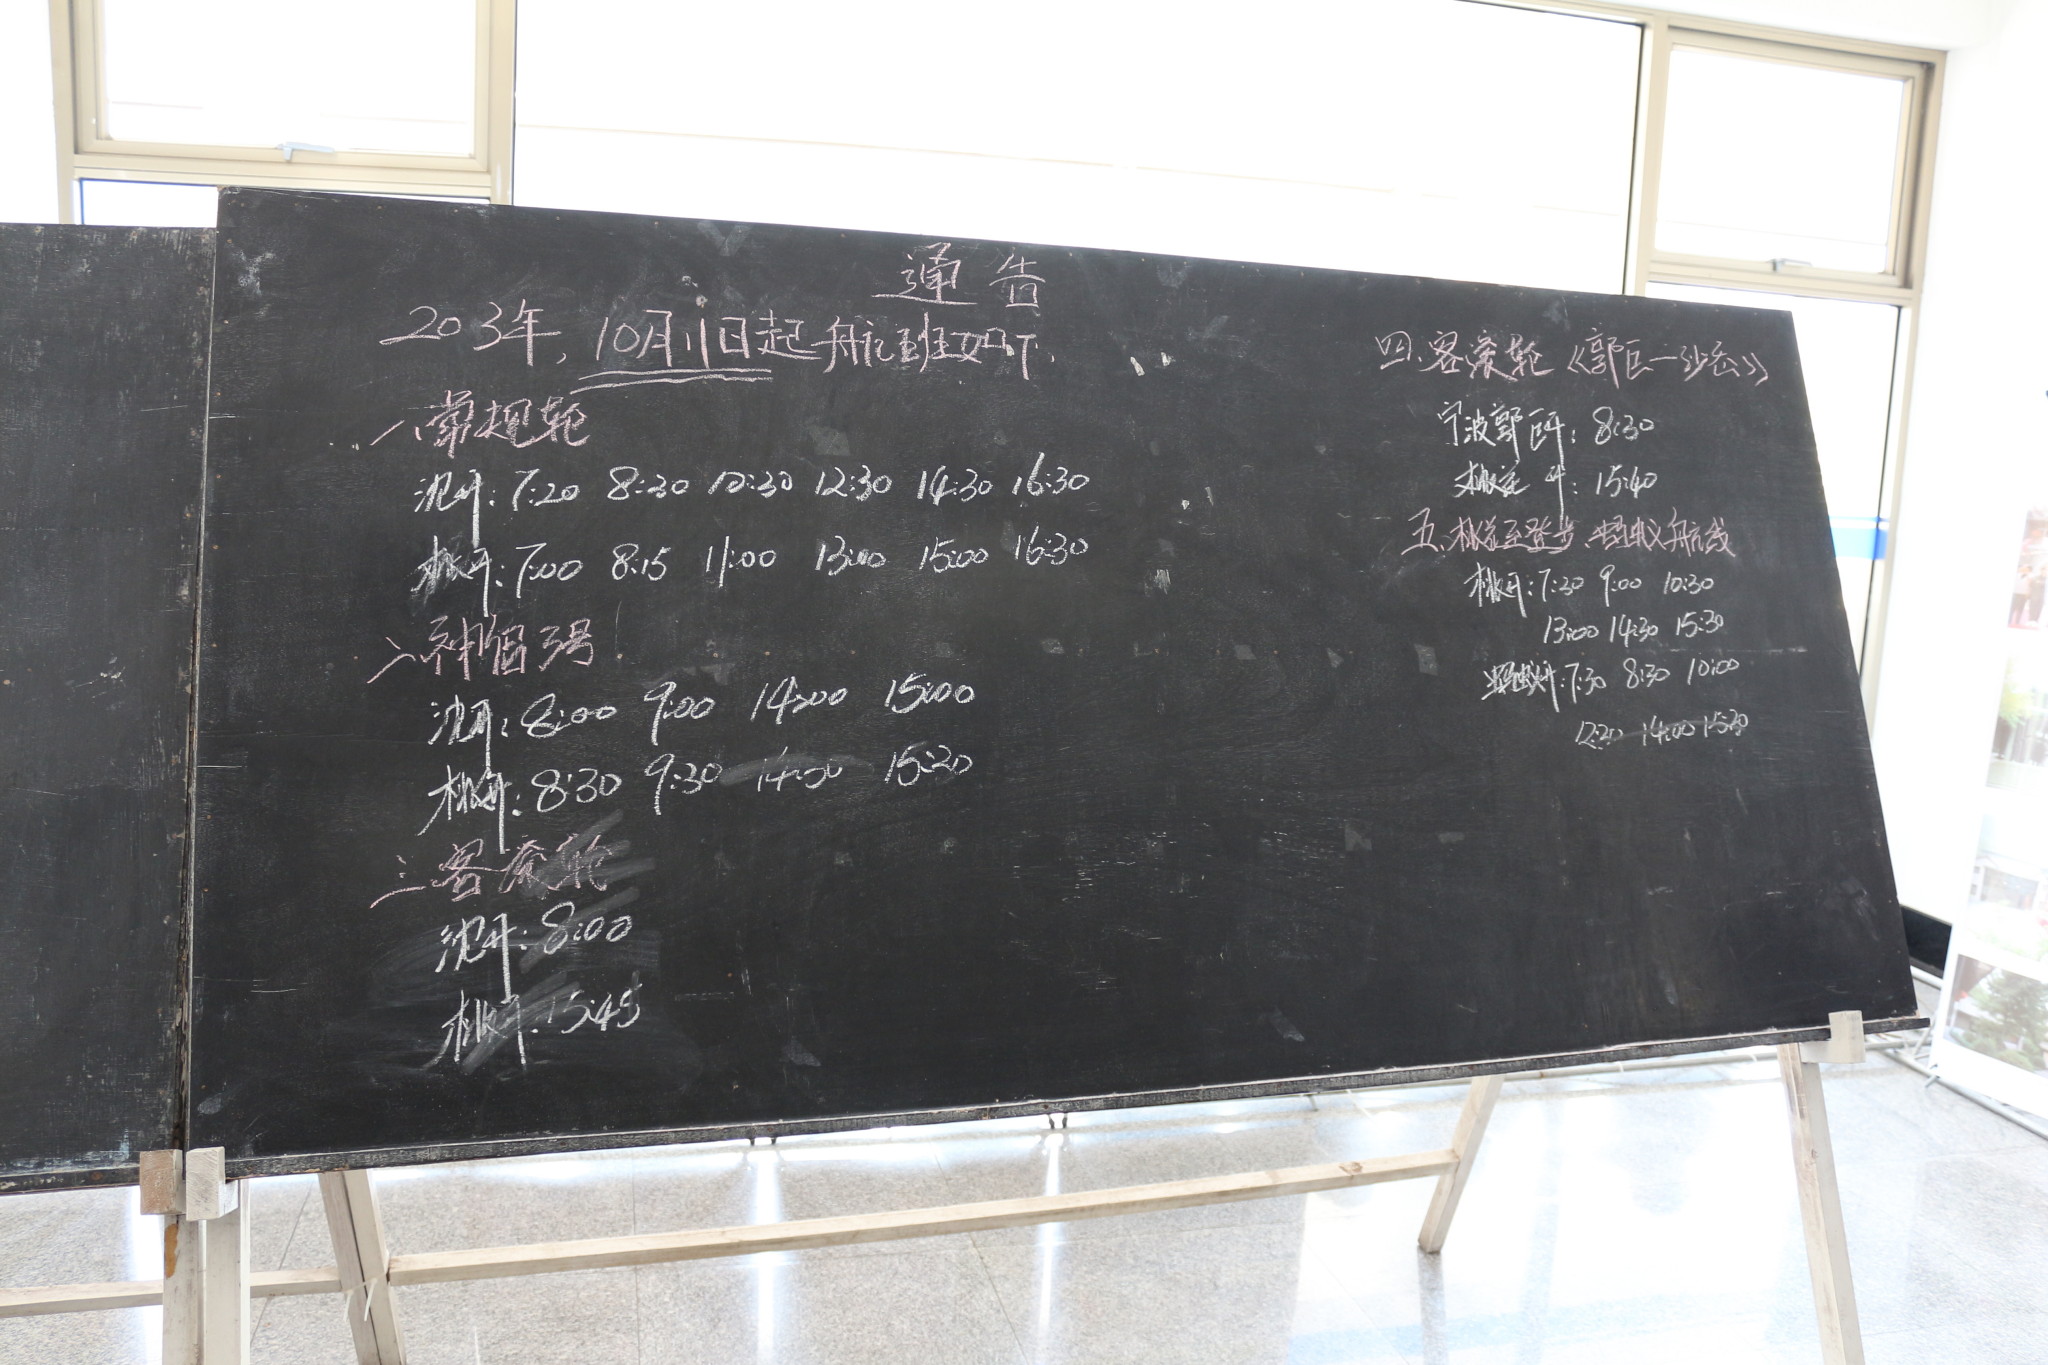 通告
203年，10月11日起航班如下
一、常规轮
沈开：7:20 8:30 10:30 12:30 14:30 16:30
桃开：7:00 8:15 11:00 13:00 15:00 16:30
二、神舟3号
沈开：8:00 9:00 14:00 15:00
桃开：8:30 9:30 14:30 15:20
三、客滚轮
沈开：8:00
桃开：15:45
四、客滚轮《郭巨一沙岙》
宁波郭巨开：8:30
桃花开：15:40
五、桃花至登步、蚂蚁航线
桃开：7:30 9:00 10:30
13:00 14:30 15:30
蚂蚁开：7:30 8:30 10:00
12:20 14:00 15:30